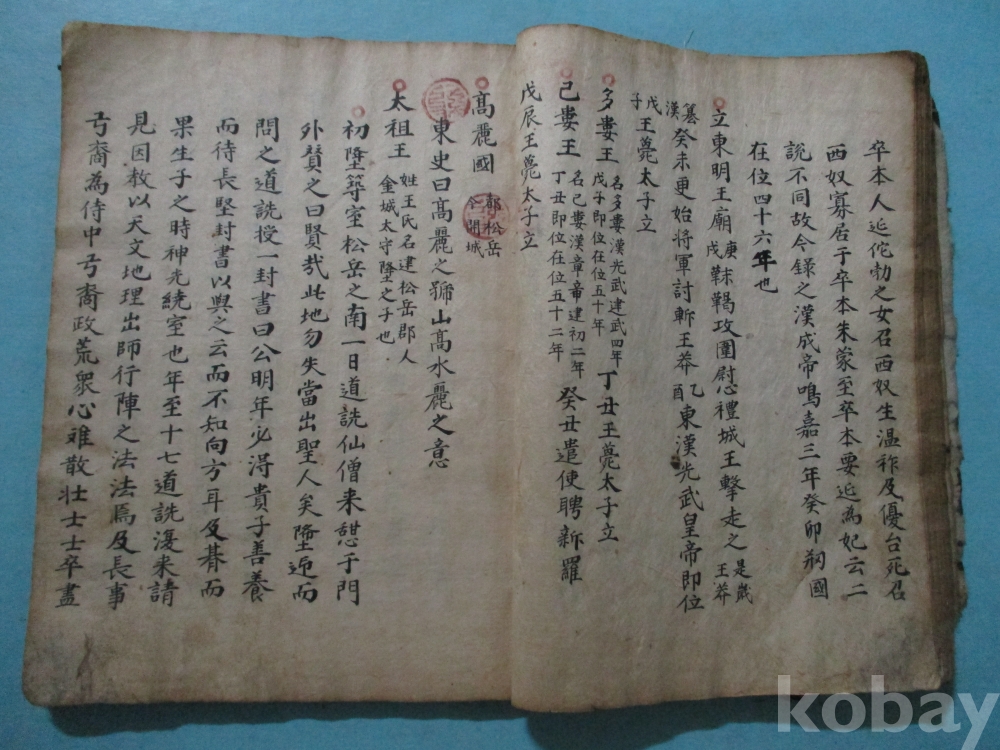 卒本人延佗勃之女召西奴生温祚及優台死召
西奴寡居于卒本朱蒙至卒本要延為妃云二
說不同故今録之漢成帝鳴嘉三年癸卯刱國
在位四十六年也
立東明王廟 庚戌 靺鞨攻圍慰礼城王擊走之 是歲王莽
簒漢 癸未更始将軍討斬王莽 乙酉 東漢光武皇帝即位
戊子 王薨太子立
多婁王 名多婁漢光武建武四年戊子即位在位五十年 丁丑王薨太子立
己婁王 名己婁漢章帝建初二年丁丑即位在位五十二年 癸丑遣使聘新羅
戊辰王薨太子立
髙麗國 都松岳今開城
東史曰髙麗之號山髙水麗之意
太祖王 姓王氏名建松岳郡人金城太守隆之子也
初隆築室松岳之南一日道詵仙僧来憇于門
外賛之曰賢㢤此地勿失當出聖人矣隆迎而
問之道詵授一封書曰公明年必淂貴子善養
而待長堅封書以與之云而不知向方耳及朞而
果生子之時神光繞室也年至十七道詵復来請
見因教以天文地理出師行陣之法法焉及長事
弓裔為侍中弓裔政荒衆心难散壮士士卒盡
kobay